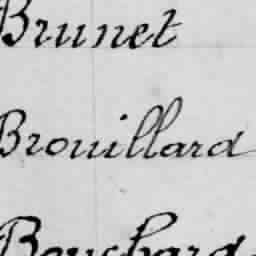 Brunet
Brouillard
Bouchard